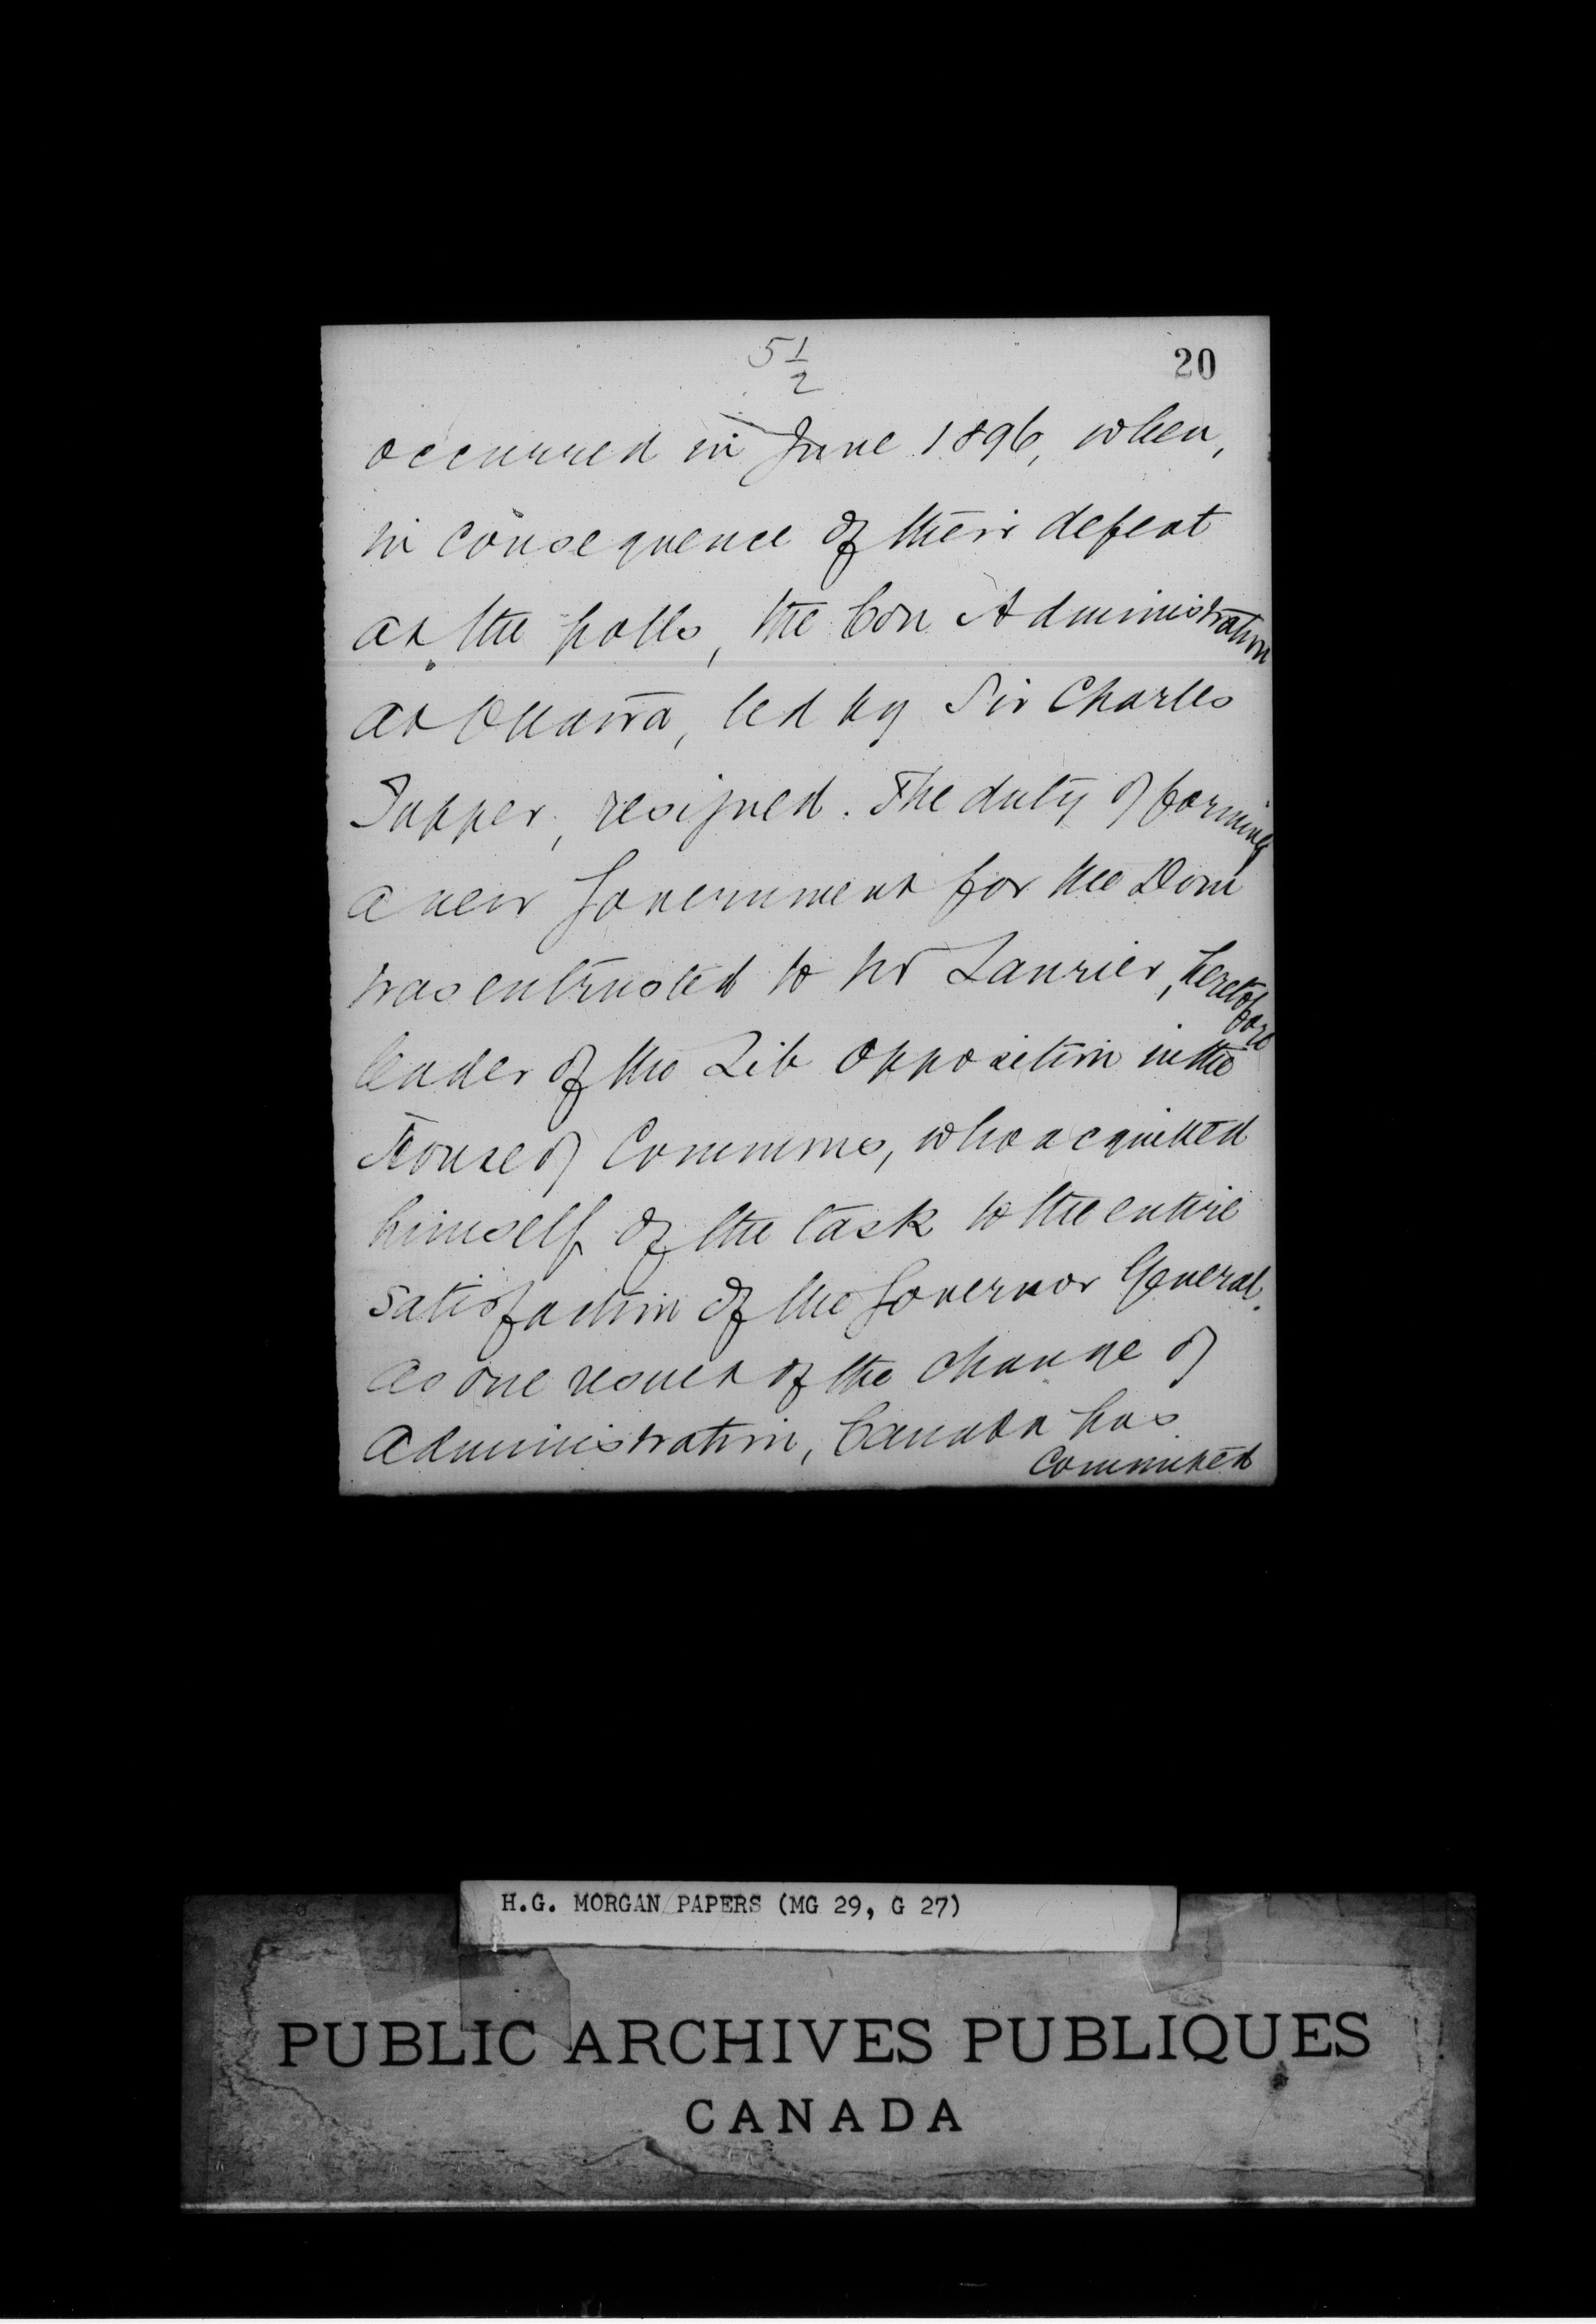 5 1/2
20
occurred in June 1896, when,
in consequence of their defeat
at the polls, the Con Administration
at Ottawa, led by Sir Charles
Tupper, resigned. The duty of forming
a new Government for the Dom
was entrusted to Mr Laurier, heretofore
leader of the Lib Opposition in the
House of Commons, who acquitted
himself of the task to the entire
satisfaction of the Governor General.
As one result of the change of
Administration, Canada has
committed
H.G. MORGAN PAPERS (MG 29, G 27)
PUBLIC ARCHIVES PUBLIQUES
CANADA